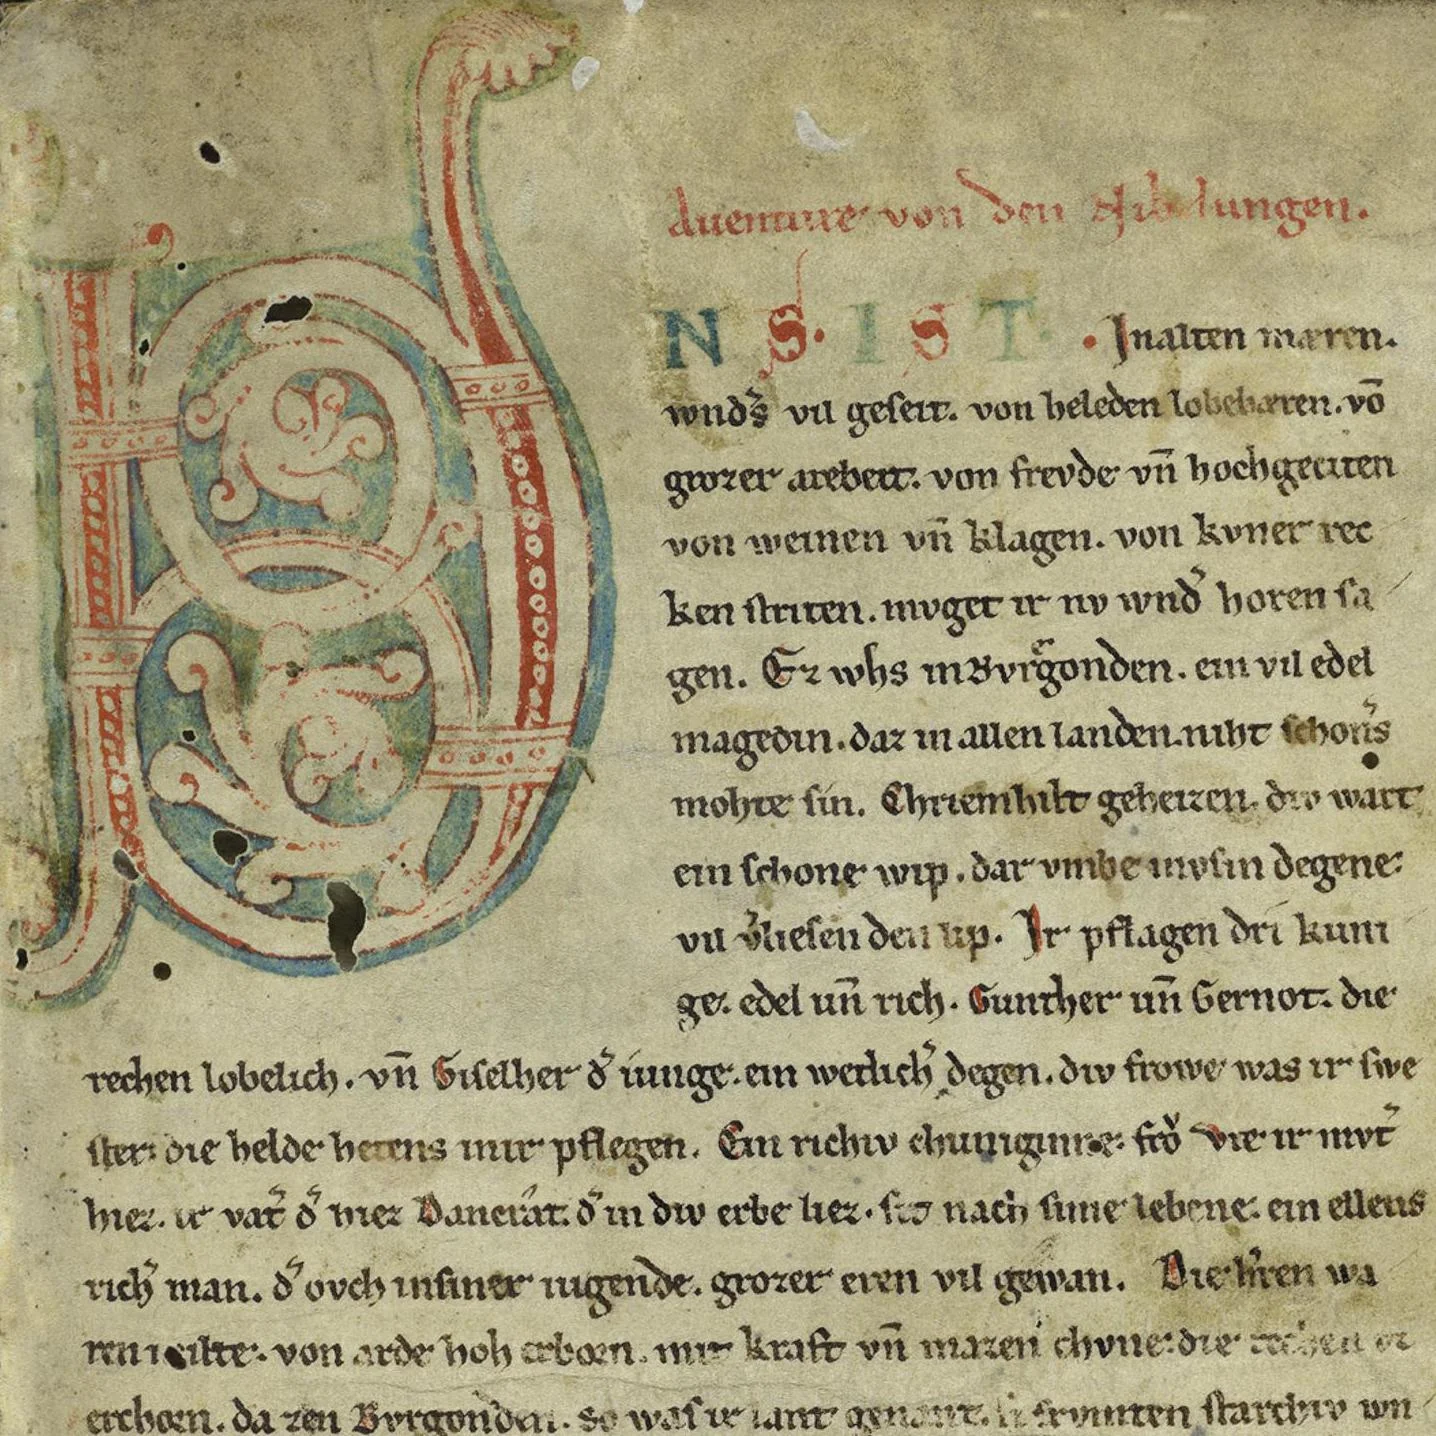 Auenture von den Nibelungen.
UNS. IST. Jn alten mæren.
wnds̉ vil geseit. von heleden lobebæren. vō
grozer arebeit. von frevde vn̄ hochgeciten
von weinen vn̄ klagen. von kvner rec
ken striten. mvget ir nv wnd̉ horen sa
gen. Ez whs in Bvrgonden. ein vil edel
magedin. daz in allen landen. niht schoners
mohte sin. Chriemhilt geheizen. div wart
ein schone wip. dar vmbe mvsin degene.
vil v̉liesen den lip. Jr pflagen dri kuni
ge. edel un̄ rich. Gunther un̄ Gernot. die
rechen lobelich. vn̄ Giselher d̉ iunge. ein wetlich̉ degen. div frowe was ir swe
ster. die helde hetens mir pflegen. Ein richiv chuniginne. fro Vte ir mvt̉
hiez. ir vat̉ d̉ hiez Dancrat. d̉ in div erbe liez. sit nach sime lebene. ein ellens
rich̉ man. d̉ ovch in siner iugende. grozer eren vil gewan. Die h̉ren wa
ren milte. von arde hoh erborn. mit kraft vn̄ mazen chvne. die rechen vz
erchorn. da zen Bvrgonden. so was ir lant genant. si frvmten starchiv wn